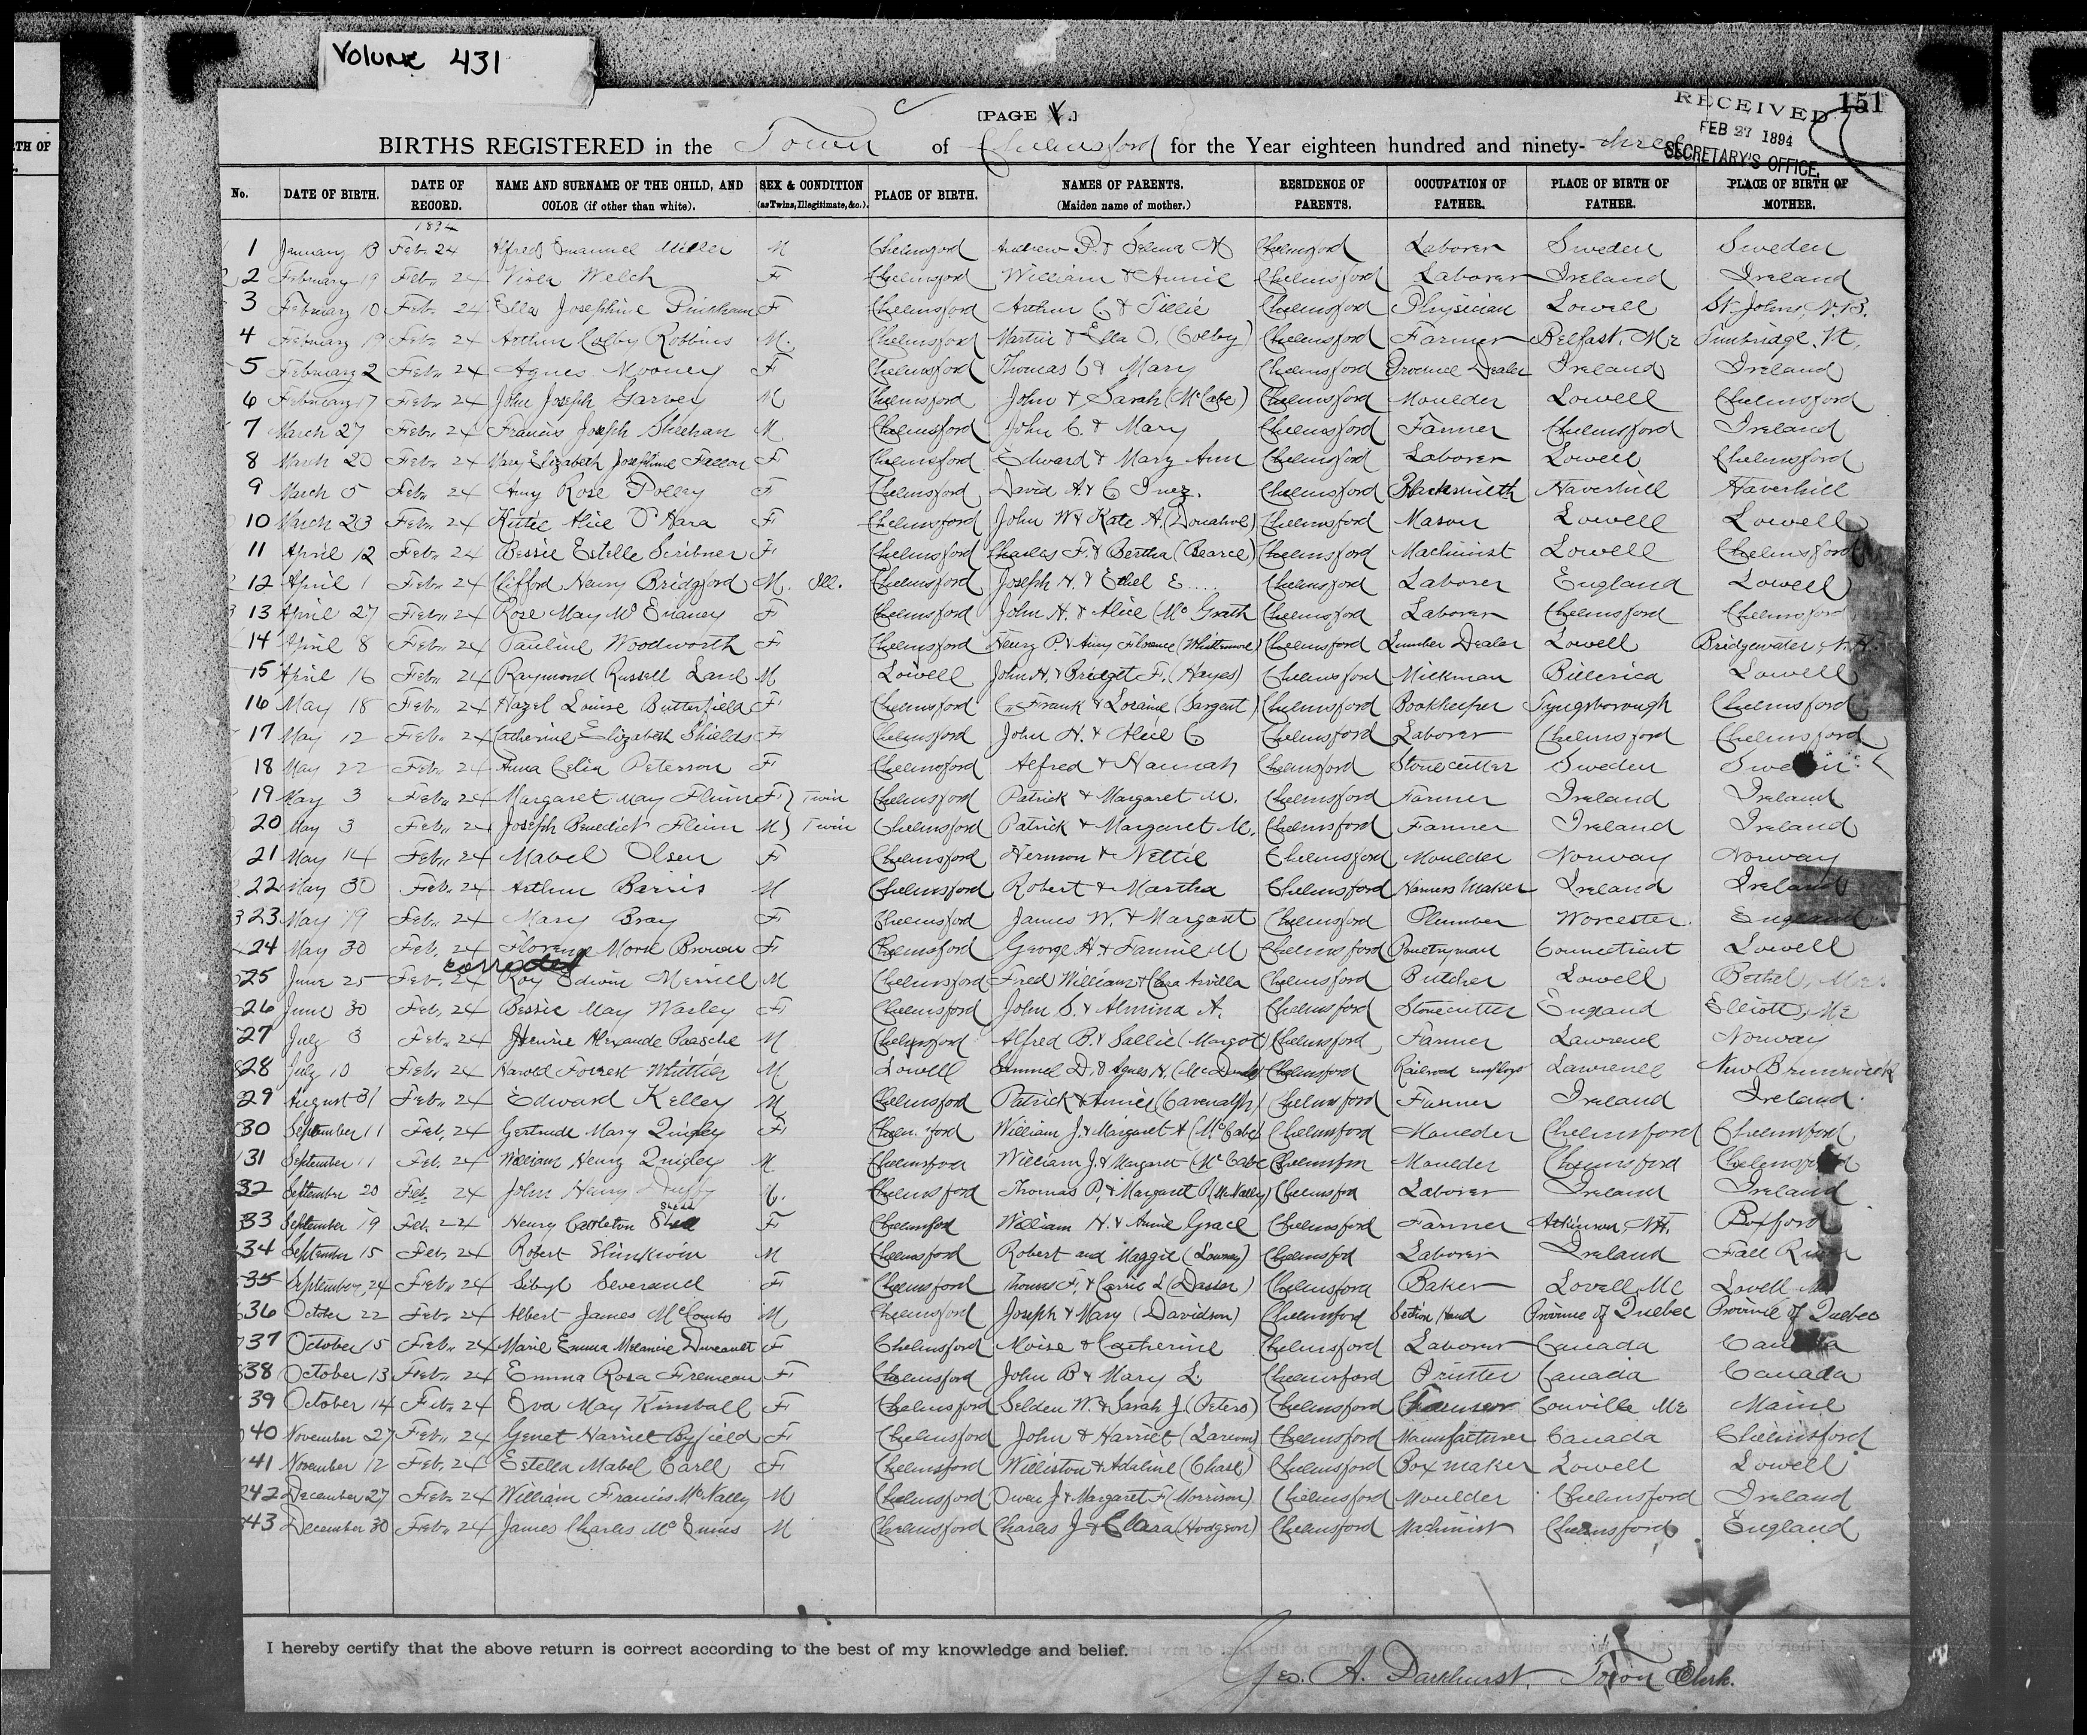 Volume 431
151
[PAGE V.]
RECEIVED
FEB 27 1894
SECRETARY'S OFFICE
BIRTHS REGISTERED in the Town of Chelmsford for the Year eighteen hundred and ninety-three
No. DATE OF BIRTH. DATE OF RECORD. NAME AND SURNAME OF THE CHILD, AND COLOR (if other than white). SEX & CONDITION (as Twins, Illegitimate, &c.). PLACE OF BIRTH. NAMES OF PARENTS. (Maiden name of mother.) RESIDENCE OF PARENTS. OCCUPATION OF FATHER. PLACE OF BIRTH OF FATHER. PLACE OF BIRTH OF MOTHER.
1894
1 January 13 Feb. 24 Alfred Emanuel Miller M Chelmsford Andrew P. & Selma M Chelmsford Laborer Sweden Sweden
2 February 19 Feb. 24 Viola Welch F Chelmsford William & Annie Chelmsford Laborer Ireland Ireland
3 February 10 Feb. 24 Ella Josephine Pinkham F Chelmsford Arthur C & Tillie Chelmsford Physician Lowell St Johns, N.B.
4 February 19 Feb. 24 Arthur Colby Robbins M. Chelmsford Martin & Ella O. (Colby) Chelmsford Farmer Belfast, Me Tunbridge, Vt.
5 February 2 Feb. 24 Agnes Mooney F Chelmsford Thomas C & Mary Chelmsford Produce Dealer Ireland Ireland
6 February 17 Feb. 24 John Joseph Garvey M Chelmsford John & Sarah (McCabe) Chelmsford Moulder Lowell Chelmsford
7 March 27 Feb. 24 Francis Joseph Sheehan M Chelmsford John C. & Mary Chelmsford Farmer Chelmsford Ireland
8 March 20 Feb. 24 Mary Elizabeth Josephine Fallon F Chelmsford Edward & Mary Ann Chelmsford Laborer Lowell Chelmsford
9 March 5 Feb. 24 Amy Rose Polley F Chelmsford David A. & C Inez. Chelmsford Blacksmith Haverhill Haverhill
10 March 23 Feb. 24 Katie Alice O'Hara F Chelmsford John W & Kate A. (Donahoe) Chelmsford Mason Lowell Lowell
11 April 12 Feb. 24 Bessie Estelle Scribner F Chelmsford Charles F. & Bertha (Pearce) Chelmsford Machinist Lowell Chelmsford
12 April 1 Feb. 24 Clifford Henry Bridgford M. Ill. Chelmsford Joseph H. & Ethel E.... Chelmsford Laborer England Lowell
13 April 27 Feb. 24 Rose May McEnaney F Chelmsford John H. & Alice (McGrath Chelmsford Laborer Chelmsford Chelmsford
14 April 8 Feb. 24 Pauline Woodworth F Chelmsford Henry P. & Amy Florence (Whittemore) Chelmsford Lumber Dealer Lowell Bridgewater N.H.
15 April 16 Feb. 24 Raymond Russell Lane M Lowell John H. & Bridget F. (Hayes) Chelmsford Milkman Billerica Lowell
16 May 18 Feb. 24 Hazel Louise Butterfield F Chelmsford C. Frank & Loraine (Sargent) Chelmsford Bookkeeper Tyngsborough Chelmsford
17 May 12 Feb. 24 Catherine Elizabeth Shields F Chelmsford John H. & Alice C Chelmsford Laborer Chelmsford Chelmsford
18 May 22 Feb. 24 Anna Celia Peterson F Chelmsford Alfred & Hannah Chelmsford Stonecutter Sweden Sweden
19 May 3 Feb. 24 Margaret May Flinn F Twin Chelmsford Patrick & Margaret M. Chelmsford Farmer Ireland Ireland
20 May 3 Feb. 24 Joseph Benedict Flinn M Twin Chelmsford Patrick & Margaret M. Chelmsford Farmer Ireland Ireland
21 May 14 Feb. 24 Mabel Olsen F Chelmsford Hermon & Nettie Chelmsford Moulder Norway Norway
22 May 30 Feb. 24 Arthur Barris M Chelmsford Robert & Martha Chelmsford Harness Maker Ireland Ireland
23 May 19 Feb. 24 Mary Bray F Chelmsford James W. & Margaret Chelmsford Plumber Worcester. England
24 May 30 Feb. 24 Florence Brown F Chelmsford George H & Fannie M Chelmsford Poultryman Connecticut Lowell
corrected
25 June 25 Feb. 24 Roy Edwin Merrill M Chelmsford Fred William & Clara Arvilla Chelmsford Butcher Lowell Bethel, Me.
26 June 30 Feb. 24 Bessie May Warley F Chelmsford John S. & Almina A. Chelmsford Stonecutter England Elliott, Me
27 July 3 Feb. 24 Henrie Alexande Paasche M Chelmsford Alfred B. & Sallie (Margot) Chelmsford Farmer Lawrence Norway
28 July 10 Feb. 24 Harold Forrest Whittier M Lowell Samuel D. & Agnes H. Chelmsford Railroad employe Lawrence New Brunswick
29 August 31 Feb. 24 Edward Kelley M Chelmsford Patrick & Annie (Cavenaugh) Chelmsford Farmer Ireland Ireland
30 September 11 Feb. 24 Gertrude Mary Quigley F Chelmsford William J. & Margaret A (McCabe) Chelmsford Moulder Chelmsford Chelmsford
31 September 11 Feb. 24 William Henry Quigley M Chelmsford William J. & Margaret (McCabe Chelmsford Moulder Chelmsford Chelmsford
32 September 20 Feb. 24 John Henry Duffy M. Chelmsford Thomas P. & Margaret R (McNally) Chelmsford Laborer Ireland Ireland
33 September 19 Feb. 24 Henry Carleton Shedd F Chelmsford William H. & Annie Grace Chelmsford Farmer Atkinson, N.H. Boxford
34 September 15 Feb. 24 Robert Shinkwin M Chelmsford Robert and Maggie (Lowney) Chelmsford Laborer Ireland Fall River
35 September 24 Feb. 24 Sibyl Severance F Chelmsford Thomas F. & Carrie L Chelmsford Baker Lovell, Me Lovell Me
36 October 22 Feb. 24 Albert James McCombs M Chelmsford Joseph & Mary (Davidson) Chelmsford Section Hand Province of Quebec Province of Quebec
37 October 15 Feb. 24 Marie Emma Melancie F Chelmsford Moise & Catherine Chelmsford Laborer Canada Canada
38 October 13 Feb. 24 Emma Rosa Fremeau F Chelmsford John B & Mary L Chelmsford Printer Canada Canada
39 October 14 Feb. 24 Eva May Kimball F Chelmsford Selden W. & Sarah J. (Peters) Chelmsford Couville Me Maine
40 November 27 Feb. 24 Genet Harriet Byfield F Chelmsford John & Harriet (Larcom) Chelmsford Manufacturer Canada Chelmsford
41 November 12 Feb. 24 Estella Mabel Carll F Chelmsford Williston & Adaline (Chase) Chelmsford Box maker Lowell Lowell
42 December 27 Feb. 24 William Francis McNally M Chelmsford Owen J & Margaret F (Morrison) Chelmsford Moulder Chelmsford Ireland
43 December 30 Feb. 24 James Charles McEnnis M Chelmsford Charles J & Clara (Hodgson) Chelmsford Machinist Chelmsford England
I hereby certify that the above return is correct according to the best of my knowledge and belief.
Geo. A. Parkhurst, Town Clerk.